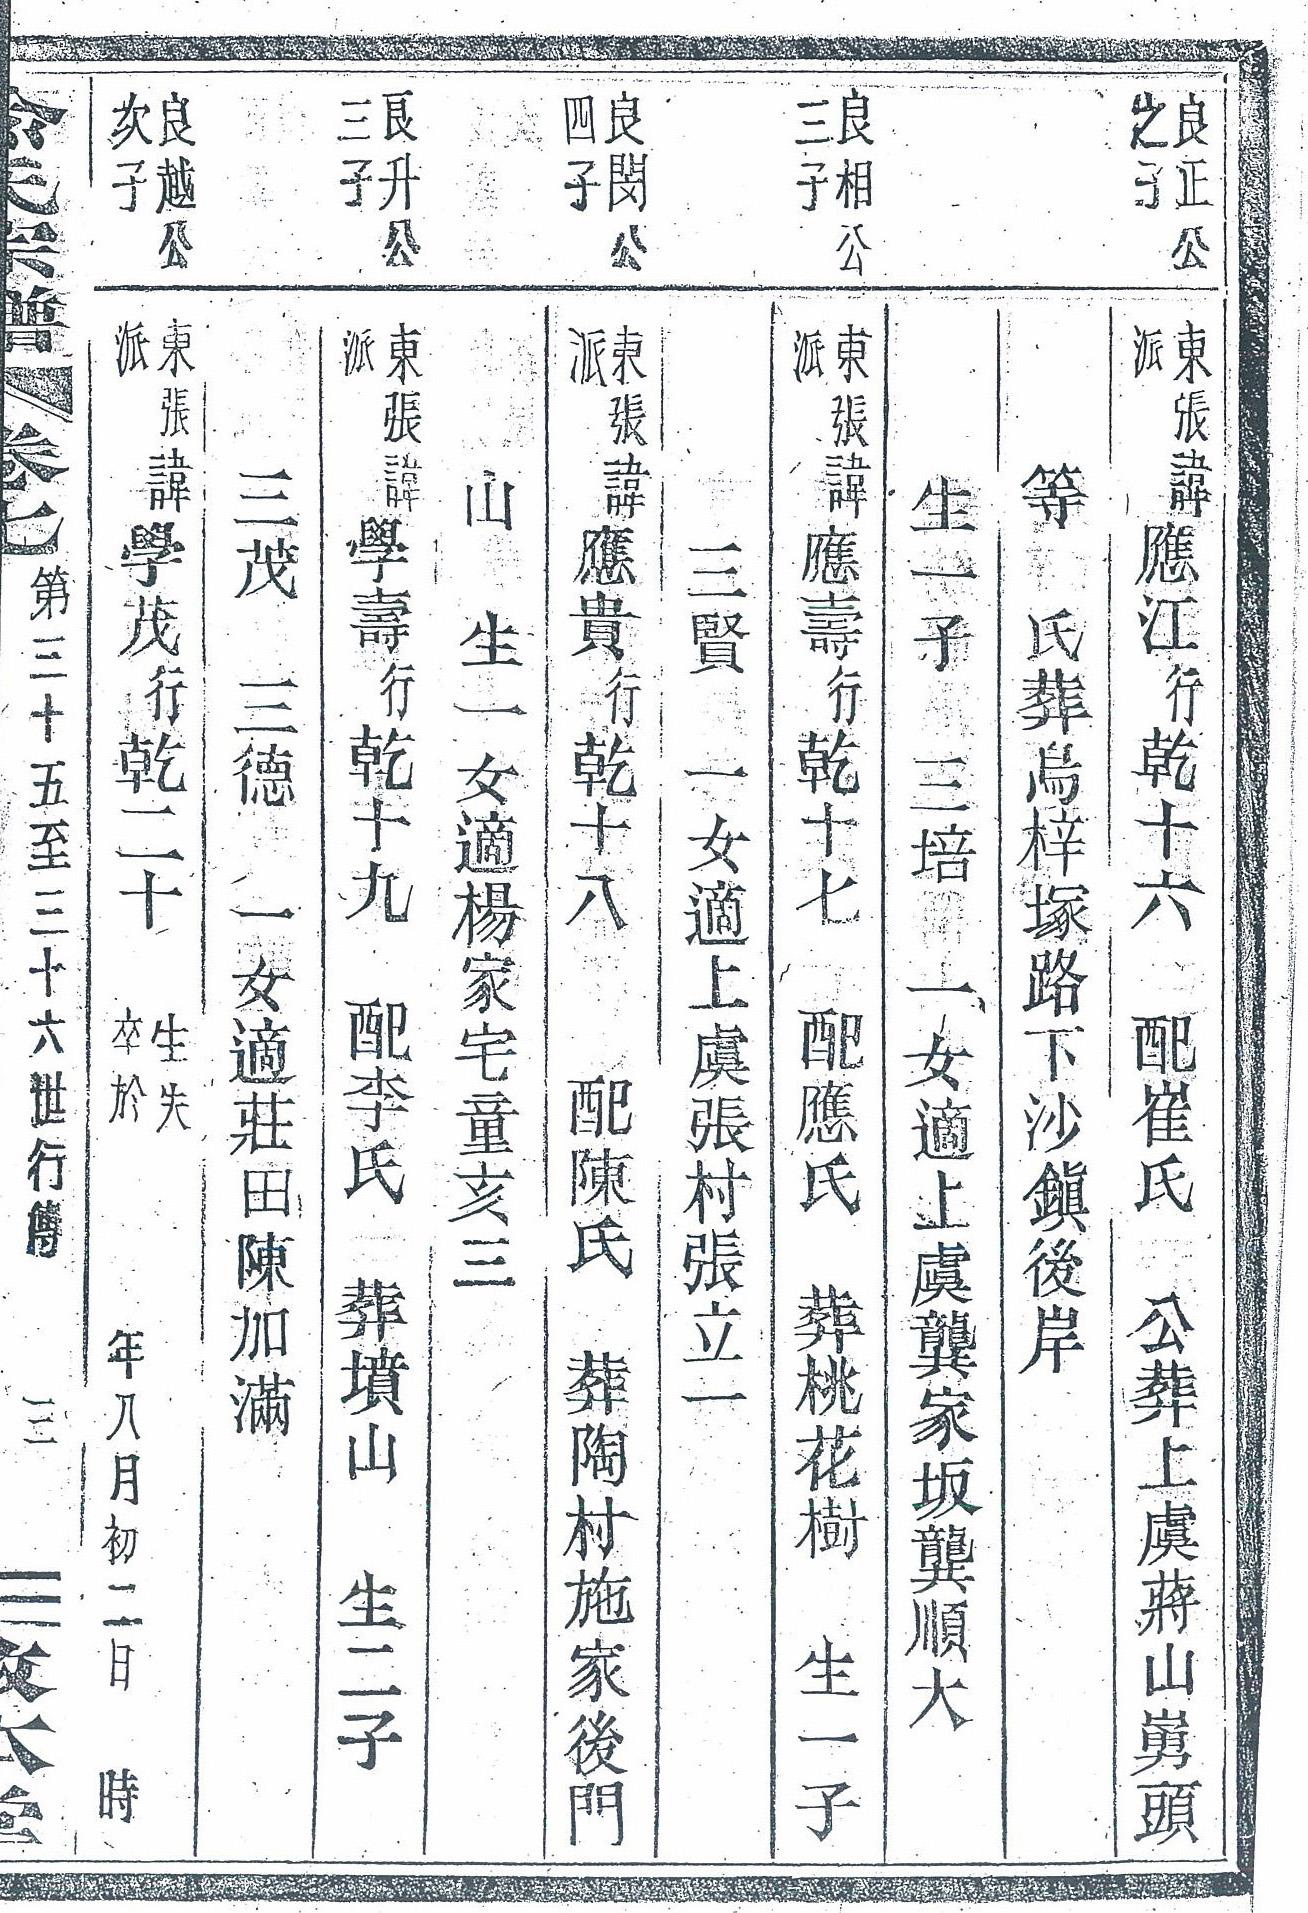 良正公
之子
東張
派
諱應江行乾十六 配崔氏 公葬上虞蔣山嶴頭
等 氏葬烏梓塚路下沙鎭後岸
生一子 三培 一女適上虞龔家坂龔順大
良相公
三子
東張
派
諱應壽行乾十七 配應氏 葬桃花樹 生一子
三賢 一女適上虞張村張立一
良閔公
四子
東張
派
諱應貴行乾十八 配陳氏 葬陶村施家後門
山 生一女適楊家宅童亥三
良升公
三子
東張
派
諱學壽行乾十九 配李氏 葬墳山 生二子
三茂 三德 一女適莊田陳加滿
良越公
次子
東張
派
諱學茂行乾二十
生失
卒於 年八月初二日 時
氏宗譜 卷七 第三十五至三十六世行傳 三 三